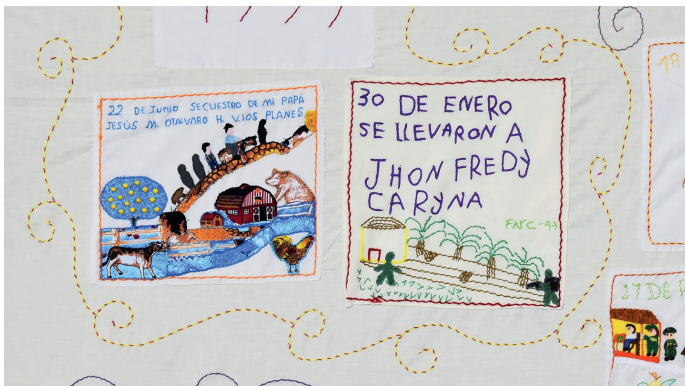 22 DE JUNIO SECUESTRO DE MI PAPÁ
JESÚS M. OTALVARO H. V. LOS PLANES
30 DE ENERO
SE LLEVARON A
JHON FREDY
CARYNA
FARC-97
18
27 DE